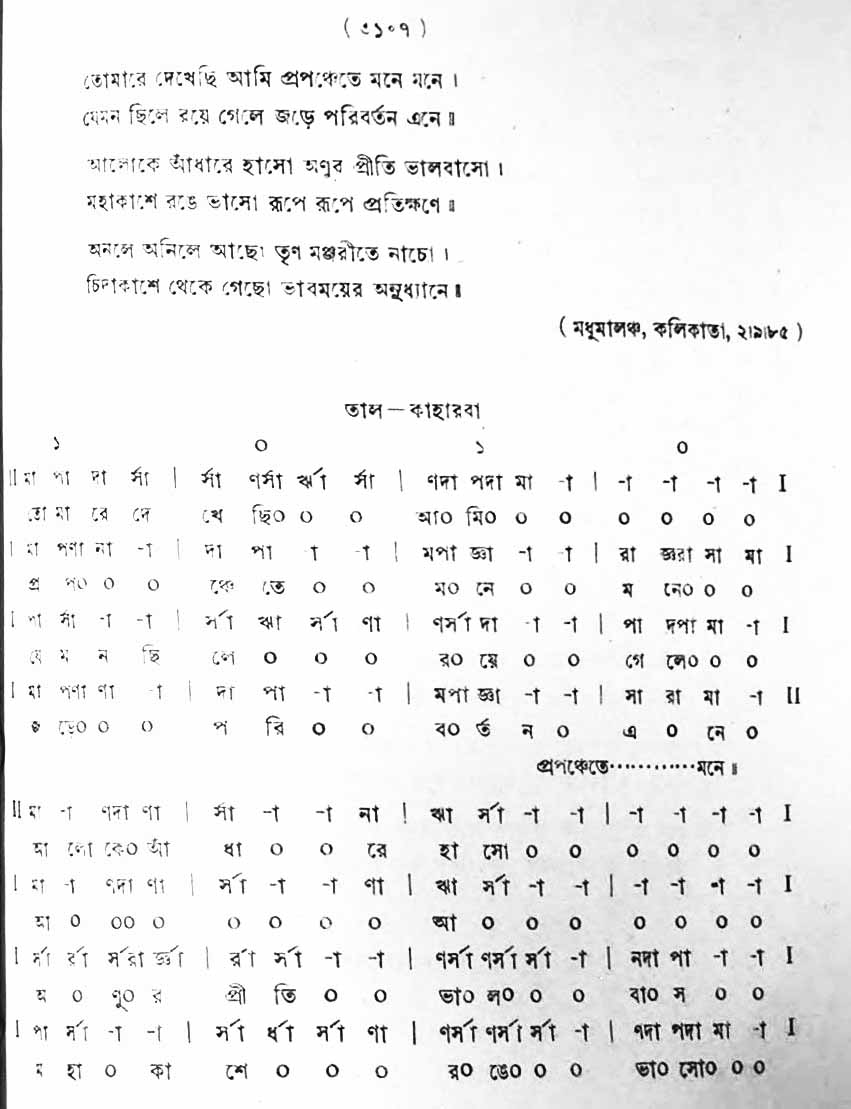 ( ৩১০৭ )
তোমারে দেখেছি আমি প্রপঞ্চেতে মনে মনে ।
যেমন ছিলে রয়ে গেলে জড়ে পরিবর্তন এনে ॥
আলোকে আঁধারে হাসো অণুর প্রীতি ভালবাসো ।
মহাকাশে রঙে ভাসো রূপে রূপে প্রতিক্ষণে ॥
অনলে অনিলে আছো তৃণ মঞ্জরীতে নাচো ।
চিদাকাশে থেকে গেছো ভাবময়ের অনুধ্যানে ॥
( মধুমালঞ্চ, কলিকাতা, ২।৯।৮৫ )
তাল – কাহারবা
১ ০ ১ ০
II মা পা দা র্সা | র্সা ণর্সা র্ঋা র্সা | ণদা পদা মা -া | -া -া -া -া I
তো মা রে দে খে ছি০ ০ ০ আ০ মি০ ০ ০ ০ ০ ০ ০
I মা পণা না -া | দা পা -া -া | মপা জ্ঞা -া -া | রা জ্ঞরা সা মা I
প্র প০ ০ ০ ঞ্চে তে ০ ০ ম০ নে ০ ০ ম নে০ ০ ০
I পা র্সা -া -া | র্সা ঋা র্সা ণা | ণর্সা দা -া -া | পা দপা মা -া I
যে ম ন ছি লে ০ ০ ০ র০ য়ে ০ ০ গে লে০ ০ ০
I মা পণা ণা -া | দা পা -া -া | মপা জ্ঞা -া -া | সা রা মা -া II
জ ড়ে০ ০ ০ প রি ০ ০ ব০ র্ত ন ০ এ ০ নে ০
প্রপঞ্চেতে············মনে ॥
II মা -া ণদা ণা | র্সা -া -া না | ঋা র্সা -া -া | -া -া -া -া I
আ লো কে০ আঁ ধা ০ ০ রে হা সো ০ ০ ০ ০ ০ ০
I মা -া ণদা ণা | র্সা -া -া ণা | ঋা র্সা -া -া | -া -া -া -া I
আ ০ ০০ ০ ০ ০ ০ ০ আ ০ ০ ০ ০ ০ ০ ০
I র্সা র্রা র্সরা র্জ্ঞা | র্রা র্সা -া -া | ণর্সা ণর্সা র্সা -া | নদা পা -া -া I
অ ০ ণু০ র প্রী তি ০ ০ ভা০ ল০ ০ ০ বা০ স ০ ০
I পা র্সা -া -া | র্সা র্ধা র্সা ণা | ণর্সা ণর্সা র্সা -া | ণদা পদা মা -া I
ম হা ০ কা শে ০ ০ ০ র০ ঙে০ ০ ০ ভা০ সো০ ০ ০